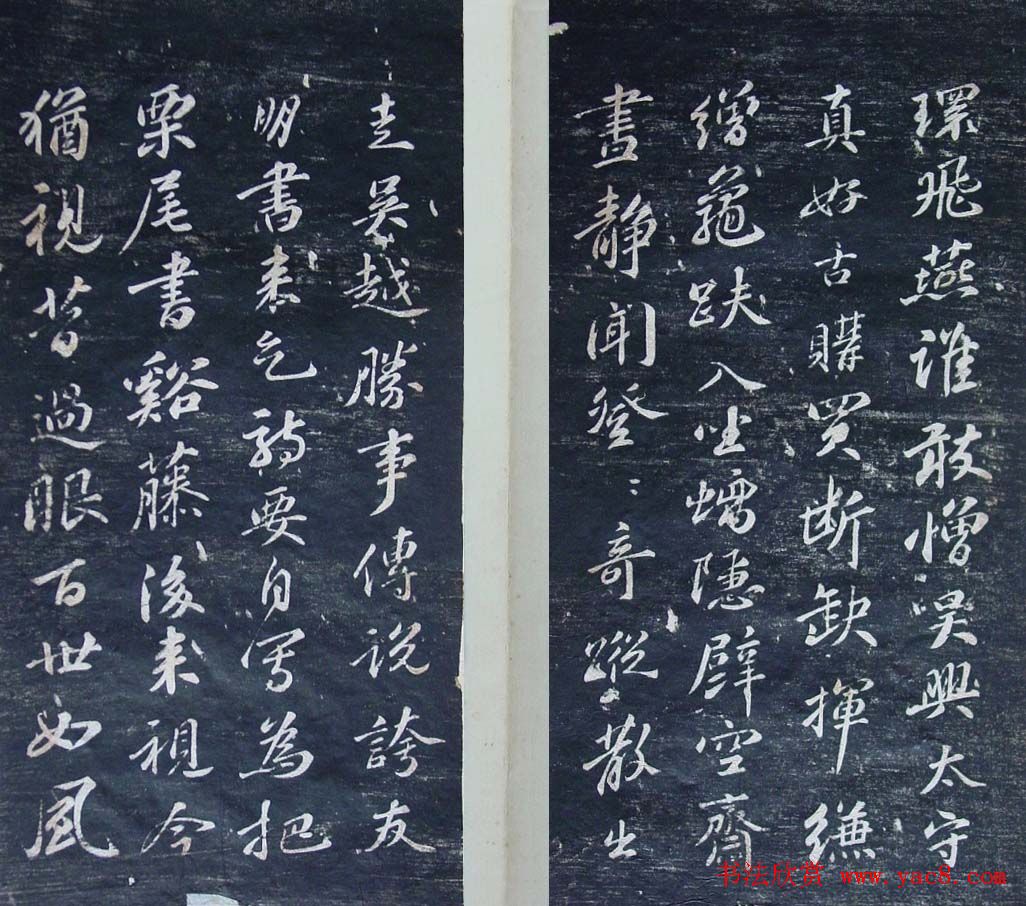 環飛燕誰敢憎吴興太守
真好古購買断缺揮縑
繒龜趺入坐螭隱壁空齋
晝靜聞登〻奇蹤散出
走吴越勝事傳説誇友
朋書来乞詩要自寫為把
栗尾書谿藤後来視今
猶視昔過眼百世如風
书法欣赏 www.yac8.com